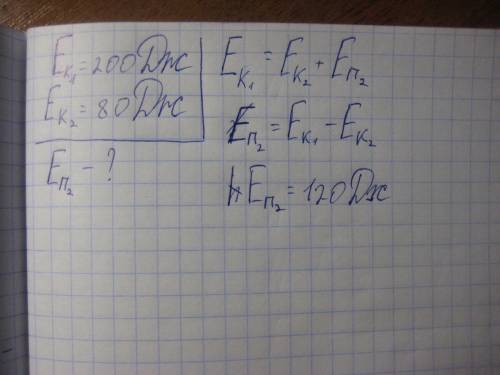 Eк₁=200Дж
Eк₂=80Дж
Eп₂-?
Eк₁=Eк₂+Eп₂
Eп₂=Eк₁-Eк₂
Eп₂=120Дж